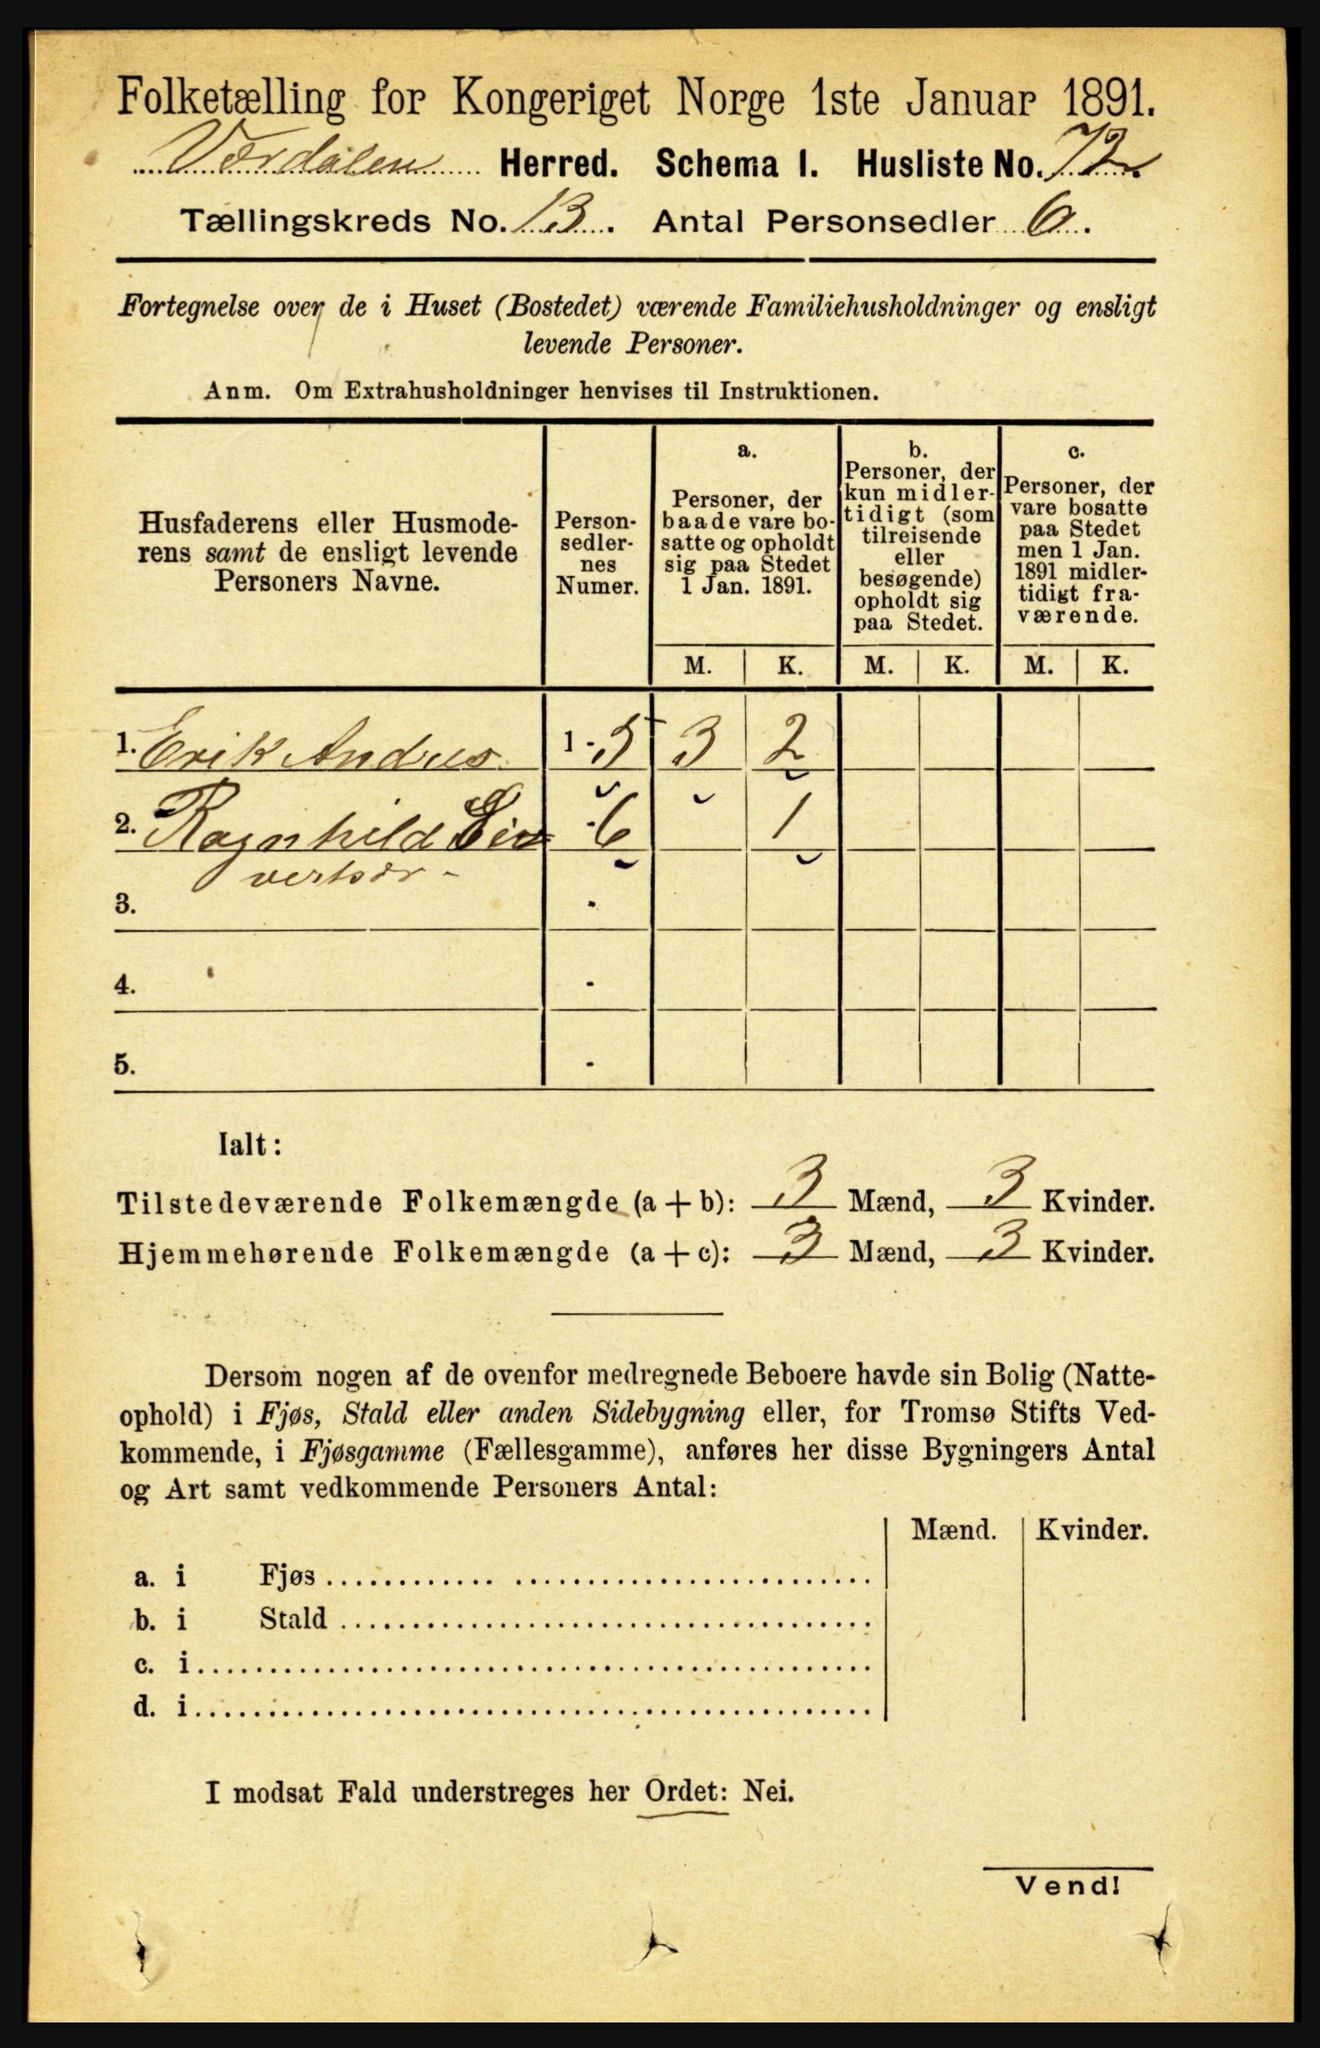 Folketælling for Kongeriget Norge 1ste Januar 1891.
Værdalen Herred. Schema I. Husliste No. 72
Tællingskreds No. 13. Antal Personsedler 6.
Fortegnelse over de i Huset (Bostedet) værende Familiehusholdninger og ensligt
levende Personer.
Anm. Om Extrahusholdninger henvises til Instruktionen.
Husfaderens eller Husmode-
rens samt de ensligt levende
Personers Navne.
Person-
sedler-
nes
Numer.
a.
Personer, der
baade vare bo-
satte og opholdt
sig paa Stedet
1 Jan. 1891.
b.
Personer, der
kun midler-
tidigt (som
tilreisende
eller
besøgende)
opholdt sig
paa Stedet.
c.
Personer, der
vare bosatte
paa Stedet
men 1 Jan.
1891 midler-
tidigt fra-
værende.
M. K. M. K. M. K.
1. Erik Andrus 1 - 5 3 2
2. Ragnhild Siv - 6 1
vertsdr -
3. -
4. -
5. -
Ialt:
Tilstedeværende Folkemængde (a + b): 3 Mænd, 3 Kvinder.
Hjemmehørende Folkemængde (a + c): 3 Mænd, 3 Kvinder.
Dersom nogen af de ovenfor medregnede Beboere havde sin Bolig (Natte-
ophold) i Fjøs, Stald eller anden Sidebygning eller, for Tromsø Stifts Ved-
kommende, i Fjøsgamme (Fællesgamme), anføres her disse Bygningers Antal
og Art samt vedkommende Personers Antal:
Mænd. Kvinder.
a. i Fjøs
b. i Stald
c. i
d. i
I modsat Fald understreges her Ordet: Nei.
Vend!